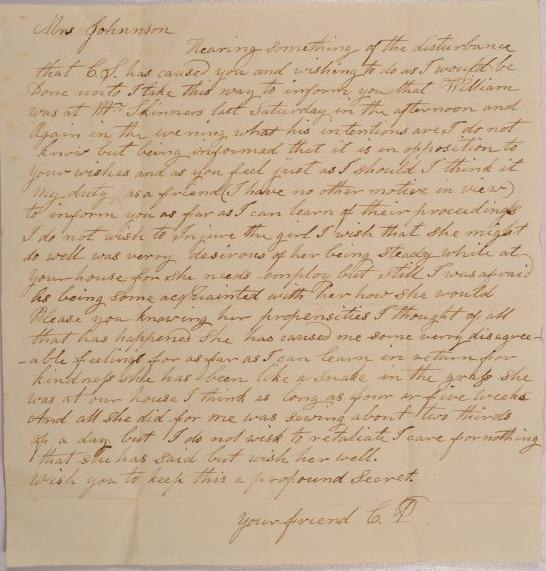 Mrs Johnnson
Hearing something of the disturbance
that C.S. has caused you and wishing to do as I would be
Done unto I take this way to inform you that William
was at Mr Skinners last Saturday in the afternoon and
Again in the evening what his intentions are I do not
know but being informed that it is in opposition to
your wishes and as you feel just as I should I think it
my duty as a friend (I have no other motive in view)
to inform you as far as I can learn of their proceedings
I do not wish to Injure the girl I wish that she might
do well was verry desirous of her being steady while at
your house for she needs employ but still I was afraid
As being some acquainted with her how she would
Please you knowing her propensities I thought of all
that has happened she has caused me some verry disagree-
-able feelings for as far as I can learn in return for
kindness she has been like a snake in the grass she
was at our house I think as long as four or five weeks
And all she did for me was sewing about two thirds
of a day but I do not wish to retaliate I care for nothing
that she has said but wish her well.
Wish you to keep this a profound Secret.
Your friend C.